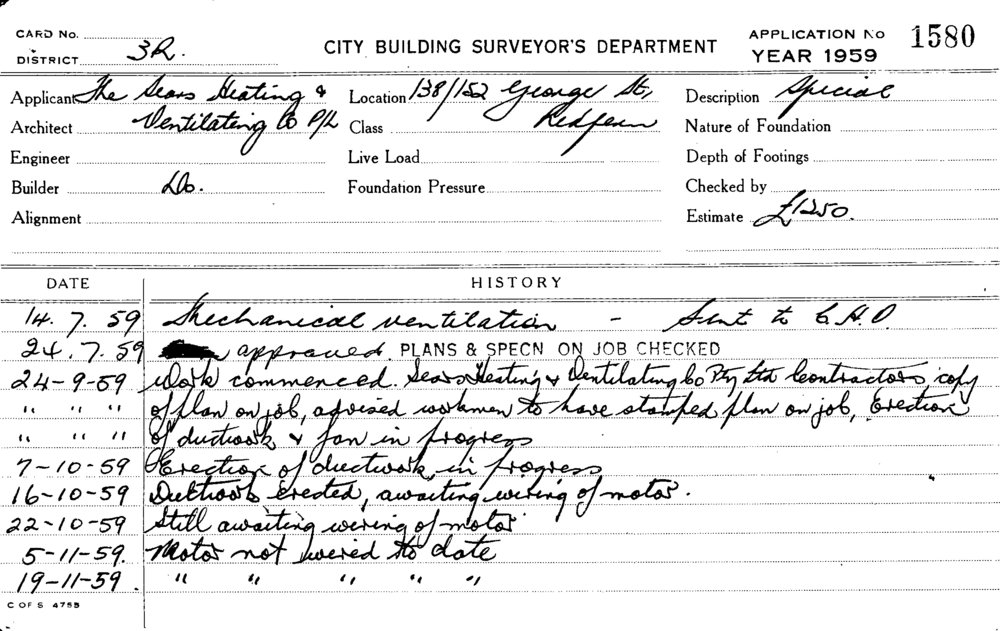 CARD No.
DISTRICT 3R.
CITY BUILDING SURVEYOR'S DEPARTMENT
APPLICATION No 1580
YEAR 1959
Applicant The Sears Heating &
Architect Ventilating Co P/L
Engineer
Builder Do.
Alignment
Location 138/152 George St,
Class Redfern
Live Load
Foundation Pressure
Description Special
Nature of Foundation
Depth of Footings
Checked by
Estimate £1250.
DATE HISTORY
14. 7. 59 Mechanical ventilation - Sent to C.H.O.
24. 7. 59 approved. PLANS & SPECN ON JOB CHECKED
24-9-59 Work commenced. Sears Heating & Ventilating Co Pty Ltd Contractors copy
" " " of plan on job, advised workmen to have stamped plan on job, Erection
" " " of ductwork & fan in progress
7-10-59 Erection of ductwork in progress
16-10-59 Ductwork erected, awaiting wiring of motor.
22-10-59 Still awaiting wiring of motor
5-11-59. Motor not wired to date
19-11-59. " " " " "
C OF S 4755